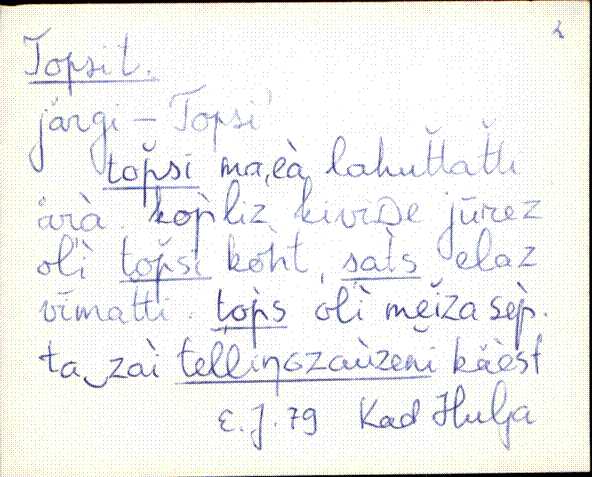 2
Topsit.
järgi – Topsi
top̆si maɛà lahut̆tat̆ti
ärà. kop̀liz kivrDe jūrez
oĺì top̆si kòht, sat̀s elaz
vīmatti. top̀s oĺì mĕiza sèp.
ta‿zaì telliŋGzaùzeni käèst
E. J. 79 Kad Hulja